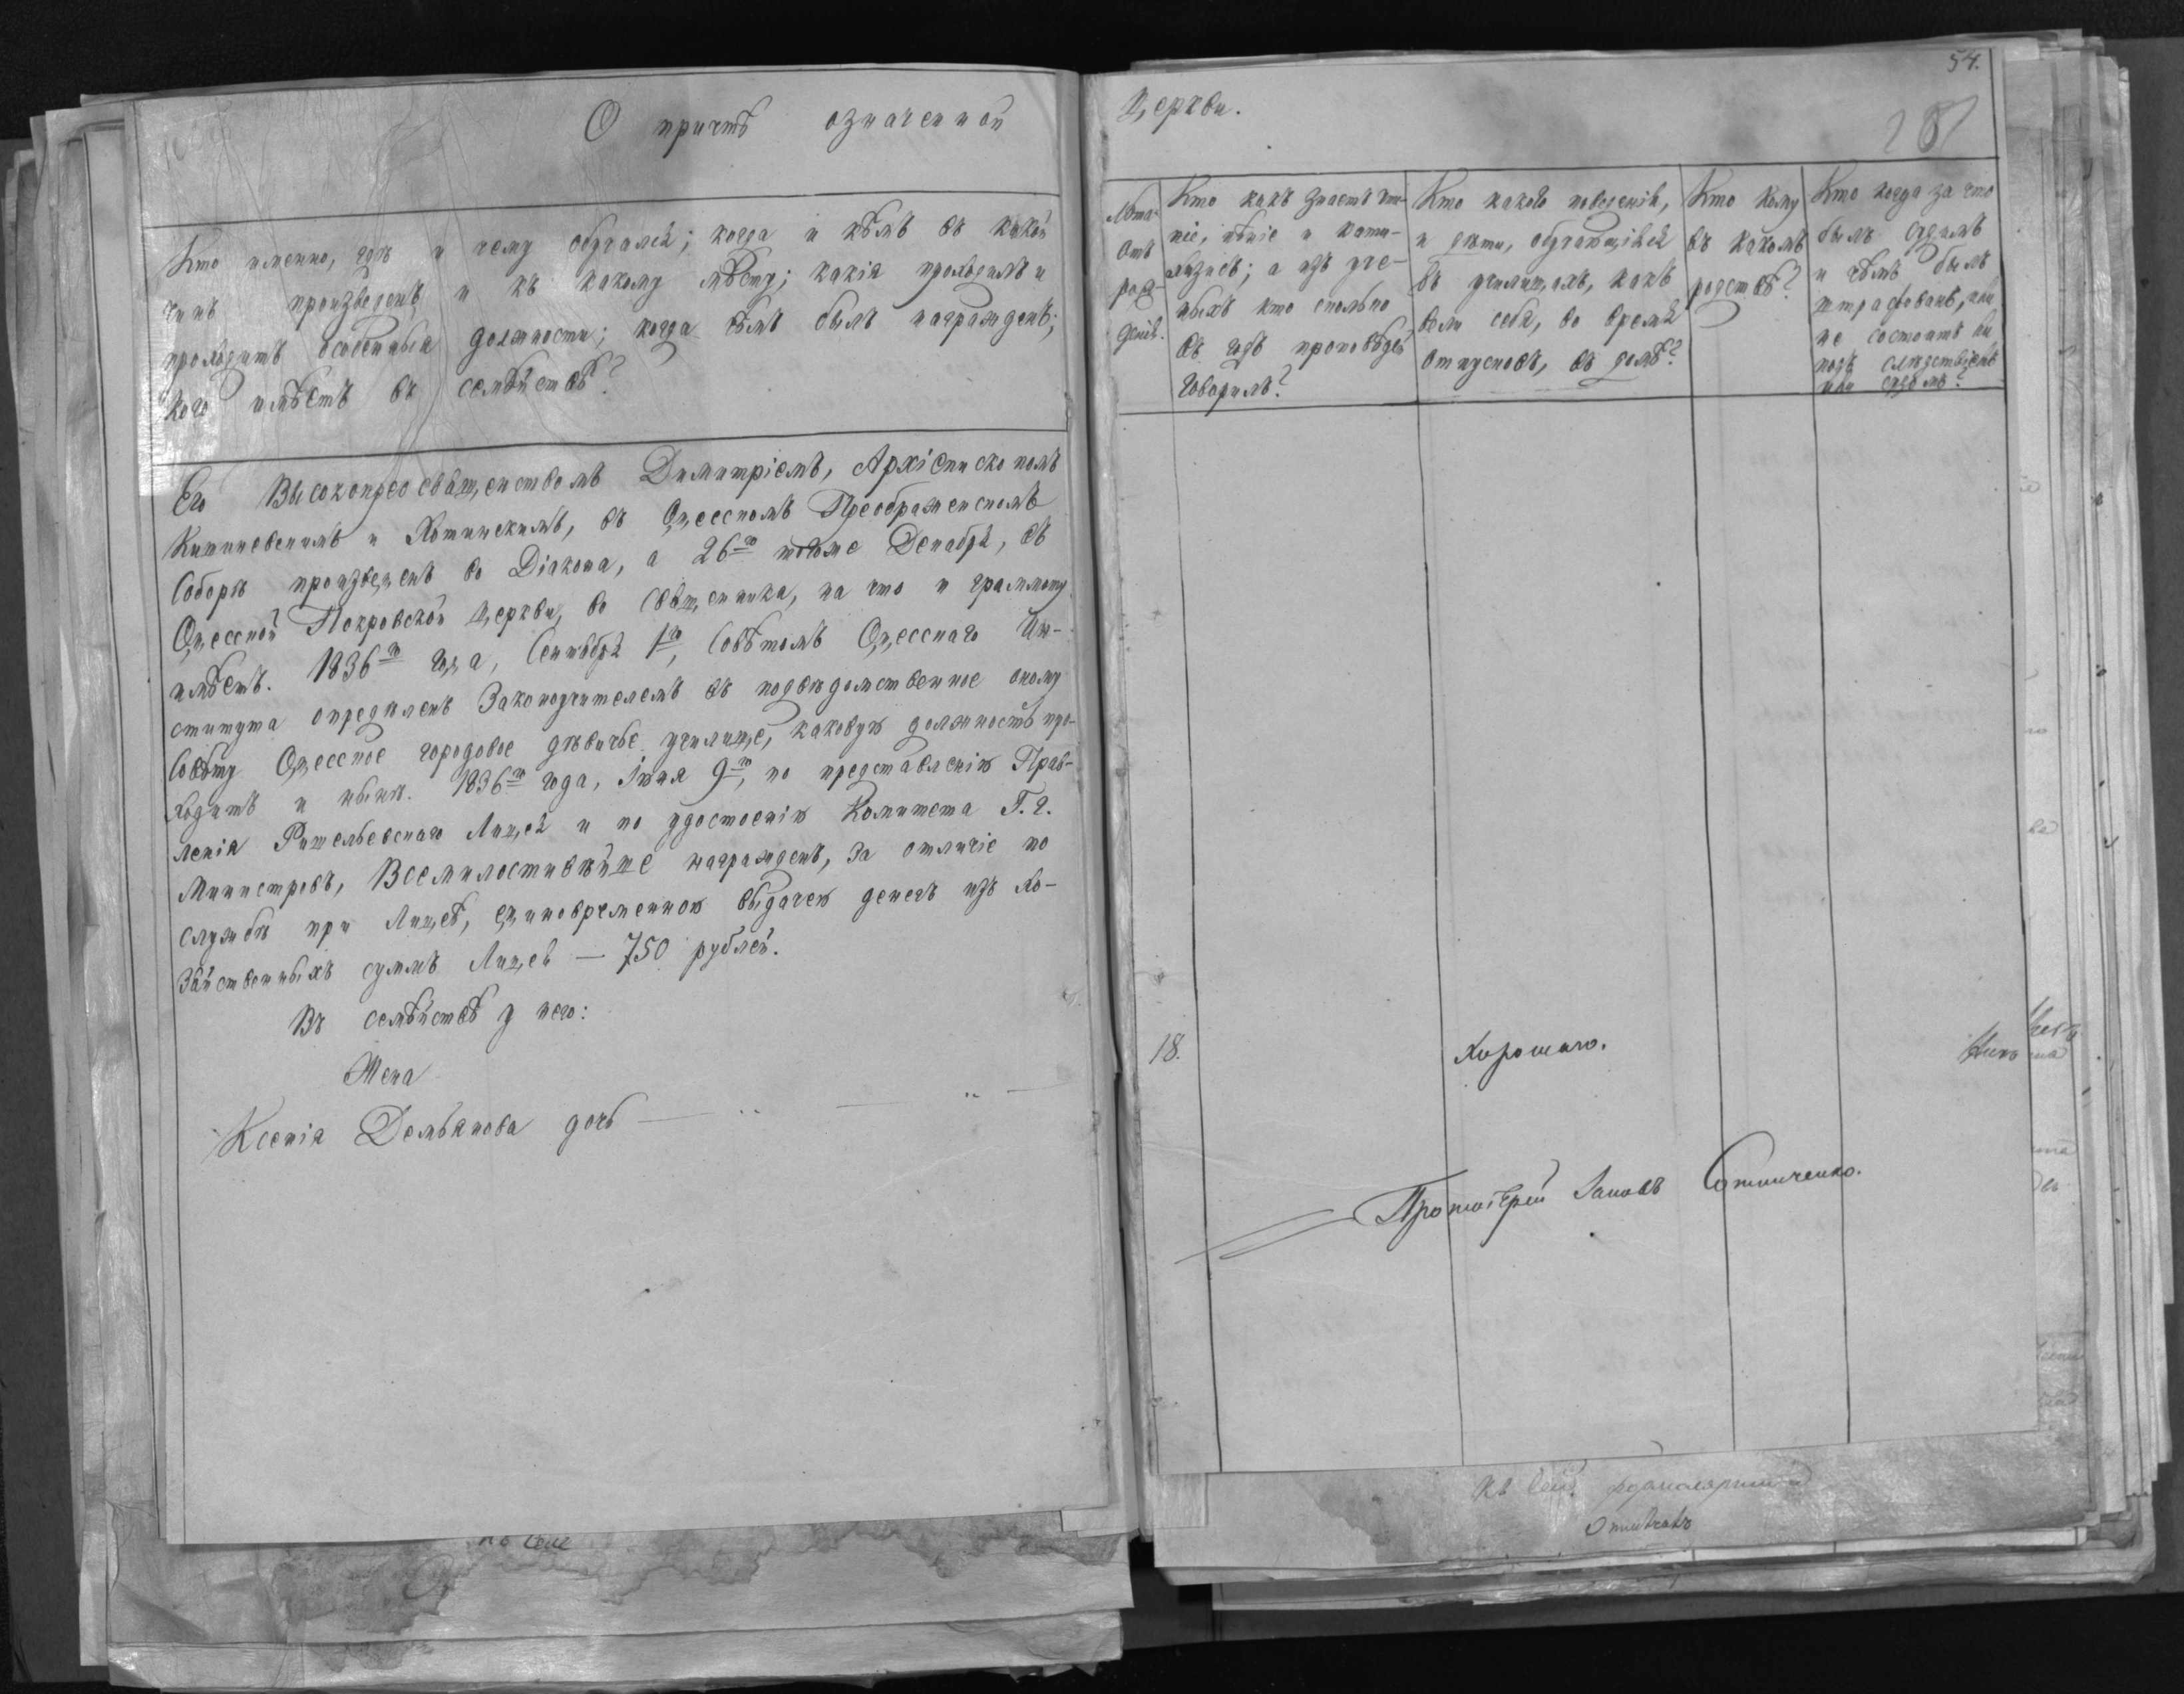 О причтѣ означенной
Кто именно, гдѣ и чему обучался; когда и кѣмъ въ какой
чинъ произведенъ и къ какому мѣсту; какія проходилъ и
проходитъ особенныя должности; когда чѣмъ былъ награжденъ;
кого имѣетъ въ семѣйствѣ?
Его Высокопреосвященствомъ Димитріемъ, Архіепископомъ
Кишиневскимъ и Хотинскимъ, въ Одесскомъ Преображенскомъ
Соборѣ произведенъ во Діакона, а 26го тогоже Декабря, въ
Одесской Покровской церкви, во Священника, на что и граммоту
имѣетъ. 1836го года, Сентября 1го, Совѣтомъ Одесскаго Ин-
ститута опредѣленъ Законоучителемъ въ подвѣдомственное оному
Совѣту Одесское городовое дѣвичье училище, каковую должность про-
ходитъ и нынѣ. 1836го года, Іюня 9го, по представленію Прав-
ленія Ришельевскаго Лицея и по удостоенію Комитета Г. г.
Министровъ, Всемилостивѣйше награжденъ, за отличіе по
службѣ при Лицеѣ, единовременною выдачею денегъ изъ Хо-
зяйственныхъ суммъ Лицея — 750 рублей.
Въ семѣйствѣ у него:
Жена
Ксенія Демьянова дочь — „ — „ —
54.
церкви.
281
Лѣта
отъ
рож-
денія.
Кто какъ знаетъ чте-
ніе, пѣніе и кати-
хизисъ; а изъ уче-
ныхъ кто сколько
въ годъ проповѣдей
говорилъ?
Кто какого поведенія,
и дѣти, обучающіеся
въ училищахъ, какъ
вели себя, во время
отпусковъ, въ домѣ?
Кто кому
въ какомъ
родствѣ?
Кто когда за что
былъ судимъ
и чѣмъ былъ
штрафованъ, или
не состоитъ ли
подъ слѣдствіемъ
или судомъ?
18.
Хорошаго.
Протоіерей Іаковъ Сотниченко.